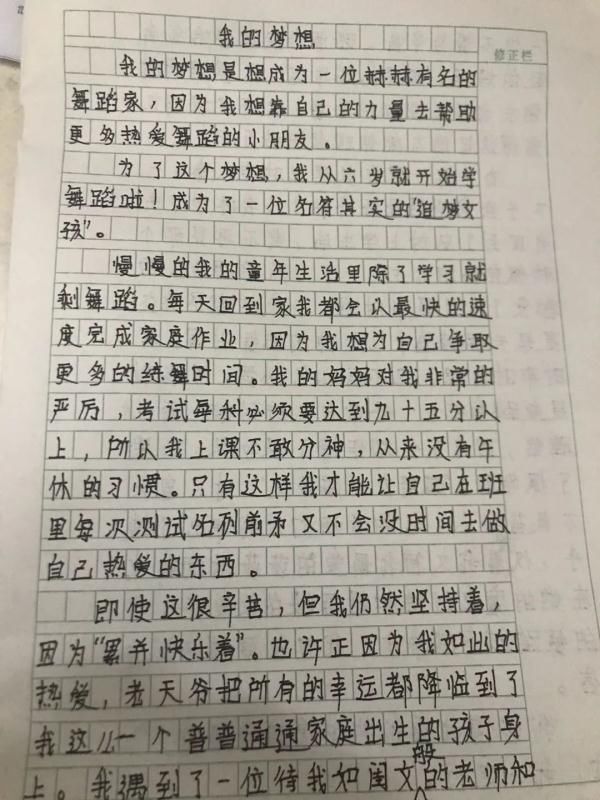 我的梦想
修正栏
我的梦想是想成为一位赫赫有名的
舞蹈家，因为我想靠自己的力量去帮助
更多热爱舞蹈的小朋友。
为了这个梦想，我从六岁就开始学
舞蹈啦！成为了一位名符其实的"追梦女
孩"。
慢慢的我的童年生活里除了学习就
剩舞蹈。每天回到家我都会以最快的速
度完成家庭作业，因为我想为自己争取
更多的练舞时间。我的妈妈对我非常的
严厉，考试每科必须要达到九十五分以
上，所以我上课不敢分神，从来没有午
休的习惯。只有这样我才能让自己在班
里每次测试名列前矛又不会没时间去做
自己热爱的东西。
即使这很辛苦，但我仍然坚持着，
因为"累并快乐着"。也许正因为我如此的
热爱，老天爷把所有的幸运都降临到了
我这么一个普普通通家庭出生的孩子身
上。我遇到了一位待我如闺女般的老师和